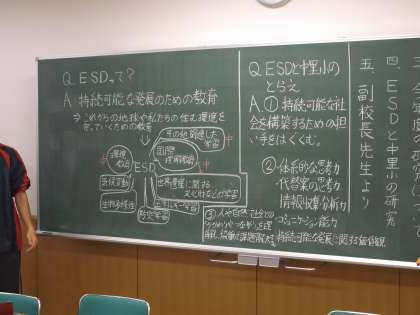 Q ESDって?
A 持続可能な発展のための教育
⇒これからの地球や私たちの住む環境を
守っていくための教育
その他関連した
学習
環境
教育
国際
理解教育
ESD
気候変動
生物多様性
防災学習
エネルギー学習
世界遺産に関する
文化財などの学習
Q ESDと中里小の
とらえ
A ① 持続可能な社
会を構築するための担
い手をはぐくむ。
② 体系的な思考力
代替案の思考力
情報収集分析力
コミュニケーション能力
③ 人や自然、社会との
持続可能な発展に関する価値観
四、ESDと中里小の研究
五、副校長先生より